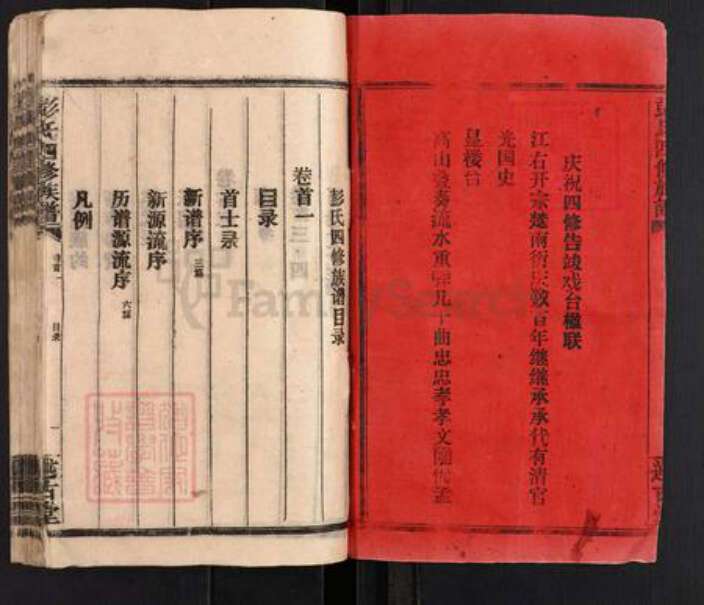 庆祝四修告竣戏台楹联
江右开宗楚南衍 数百年继继承承代有清官
光国史
皇楼台
高山 流水重 几十曲忠忠孝孝文
彭氏四修族谱目录
卷首一 三 四
目录
首士录
新谱序 三篇
新源流序
历谱源流序 六篇
凡例
彭氏四修族谱
卷首一
目录
一
述古堂
FamilySearch